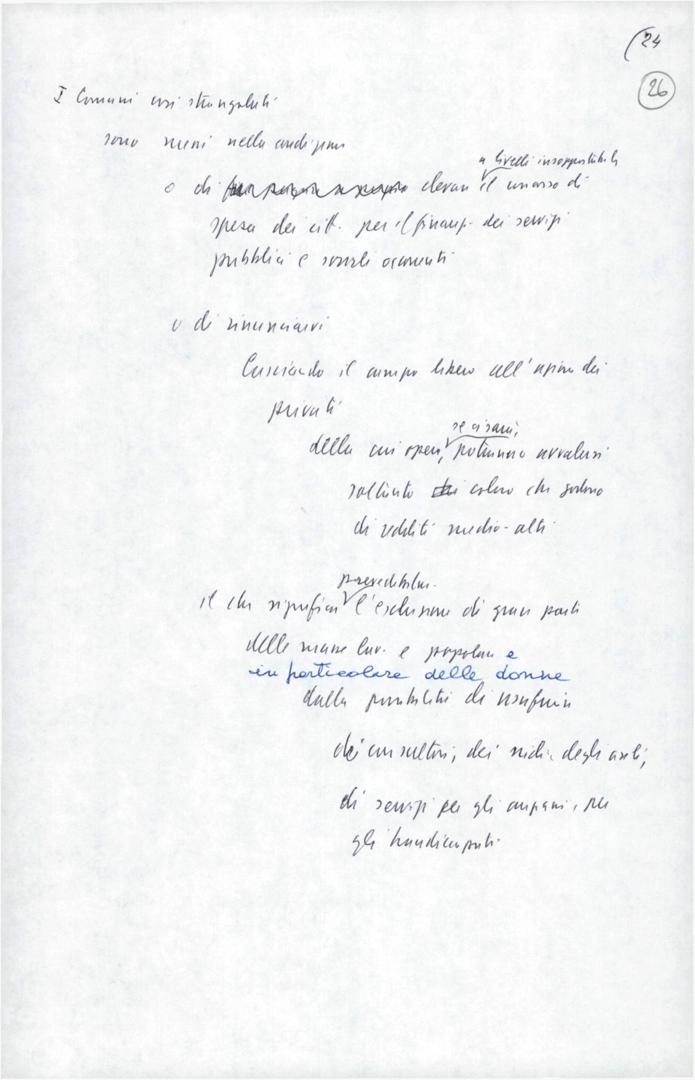 (24
26
I Comuni così strangolati
sono messi nella condizione
o di elevare il concorso di
a livelli insopportabili
spesa dei citt. per il finanz. dei servizi
pubblici e sociali
o di rinunciarvi
lasciando il campo libero all'azione dei
privati
della cui opera, potranno avvalersi
se ci sarà,
soltanto coloro che godono
di redditi medio-alti
prevedibilm.
il che significa l'esclusione di gran parte
delle masse lav. e popolari e
in particolare delle donne
dalla possibilità di usufruire
dei consultori, dei nidi, degli asili,
di servizi per gli anziani, per
gli handicappati.